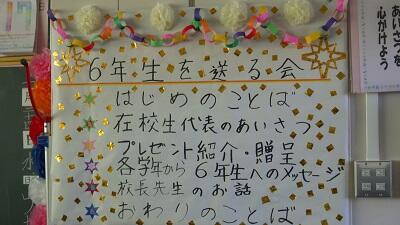 6年生を送る会
はじめのことば
在校生代表のあいさつ
プレゼント紹介・贈呈
各学年から6年生へのメッセージ
校長先生のお話
おわりのことば
あいさつを
心がけよう